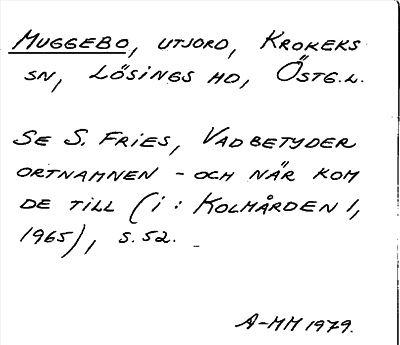 MUGGEBO, UTJORD, KROKEKS
SN, LÖSINGS HD, ÖSTG.L.
SE S. FRIES, VAD BETYDER
ORTNAMNEN - OCH NÄR KOM
DE TILL (I: KOLMÅRDEN 1,
1965), S. 52.
A-MM 1979.